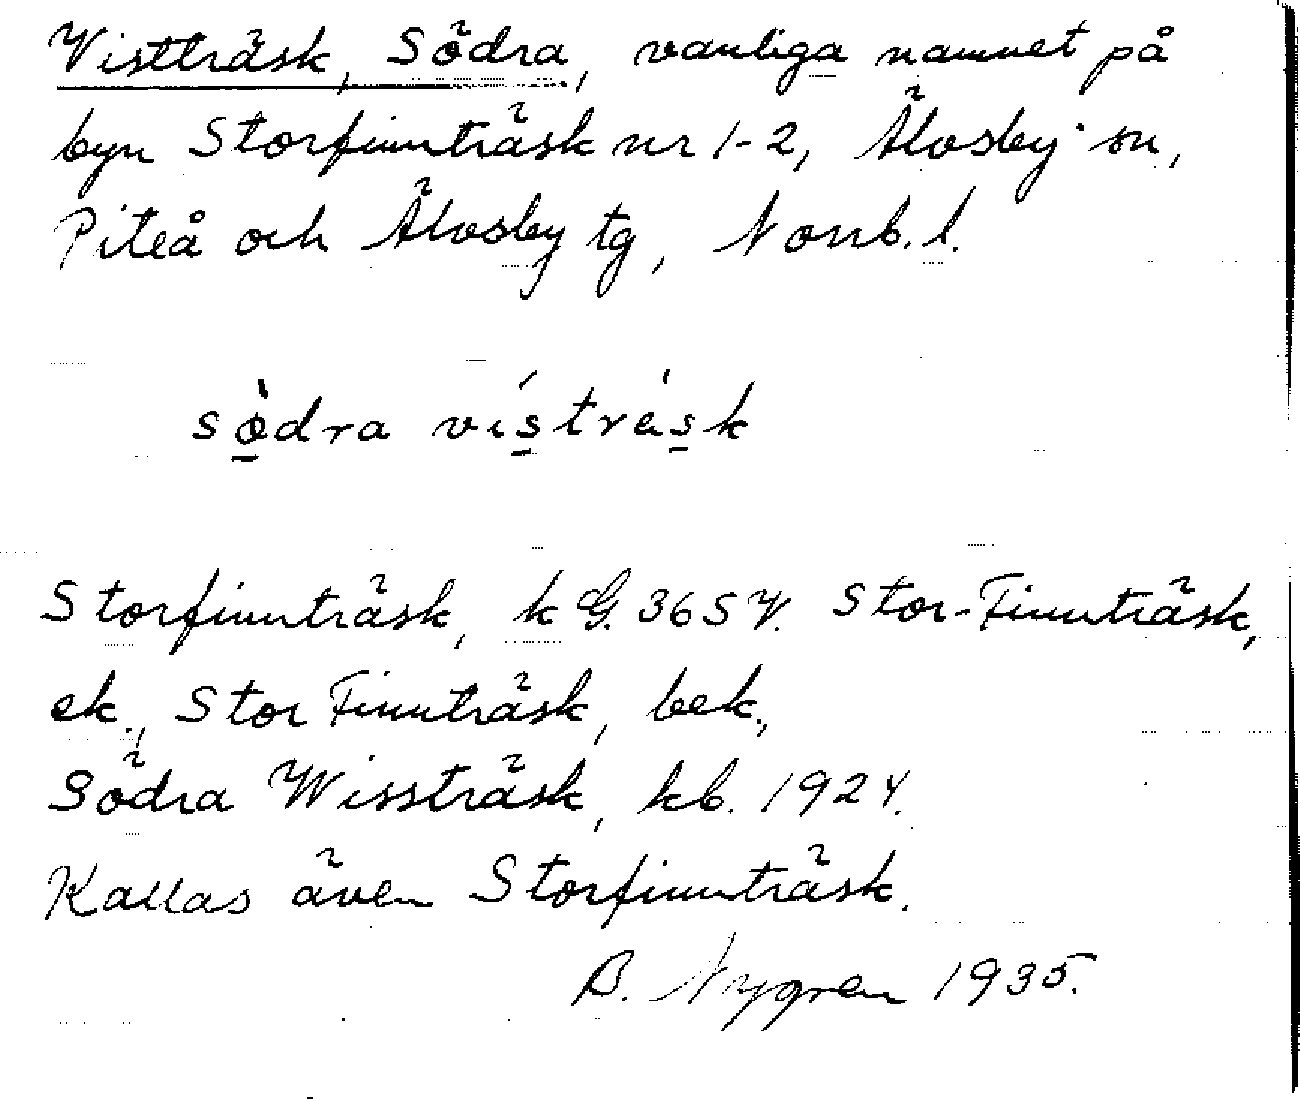 Vistträsk, Södra, vanliga namnet på
byn Storfinnträsk nr 1-2, Älvsby sn,
Piteå och Älvsby tg, Norrb. l.
södra vístrásk
Storfinnträsk, k G. 365 V. Stor-Finnträsk,
ek., Stor Finnträsk, bek.,
Södra Wissträsk, kb. 1924.
Kallas även Storfinnträsk.
B. Nygren 1935.